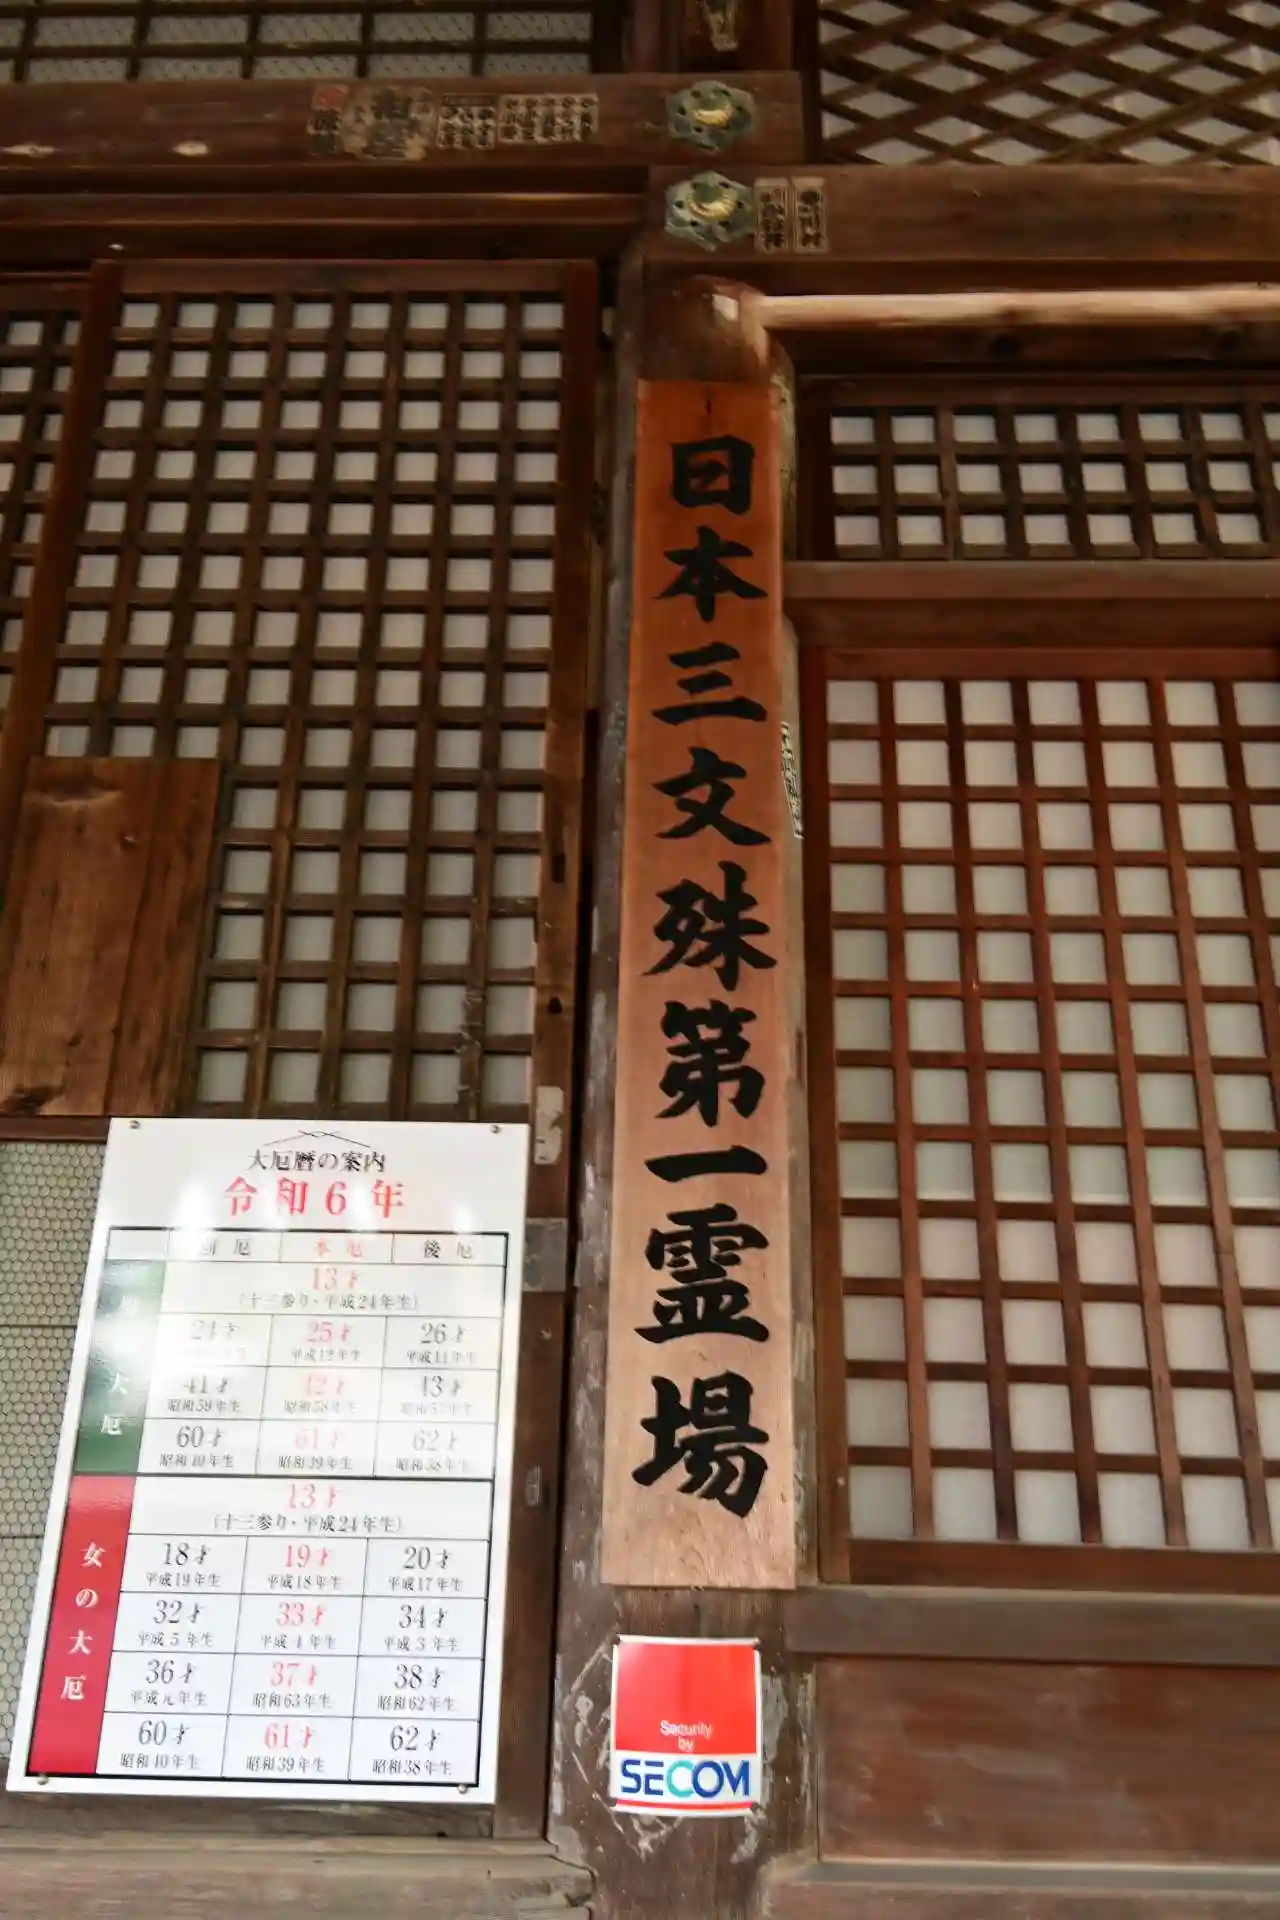 日本三文殊第一霊場
大厄暦の案内
令和6年
前厄 本厄 後厄
大厄
13才
(十三参り・平成24年生)
24才 25才 26才
平成12年生 平成11年生
41才 42才 43才
昭和59年生 昭和58年生 昭和57年生
60才 61才 62才
昭和40年生 昭和39年生 昭和38年生
女の大厄
13才
(十三参り・平成24年生)
18才 19才 20才
平成19年生 平成18年生 平成17年生
32才 33才 34才
平成5年生 平成4年生 平成3年生
36才 37才 38才
平成元年生 昭和63年生 昭和62年生
60才 61才 62才
昭和40年生 昭和39年生 昭和38年生
Security
by
SECOM